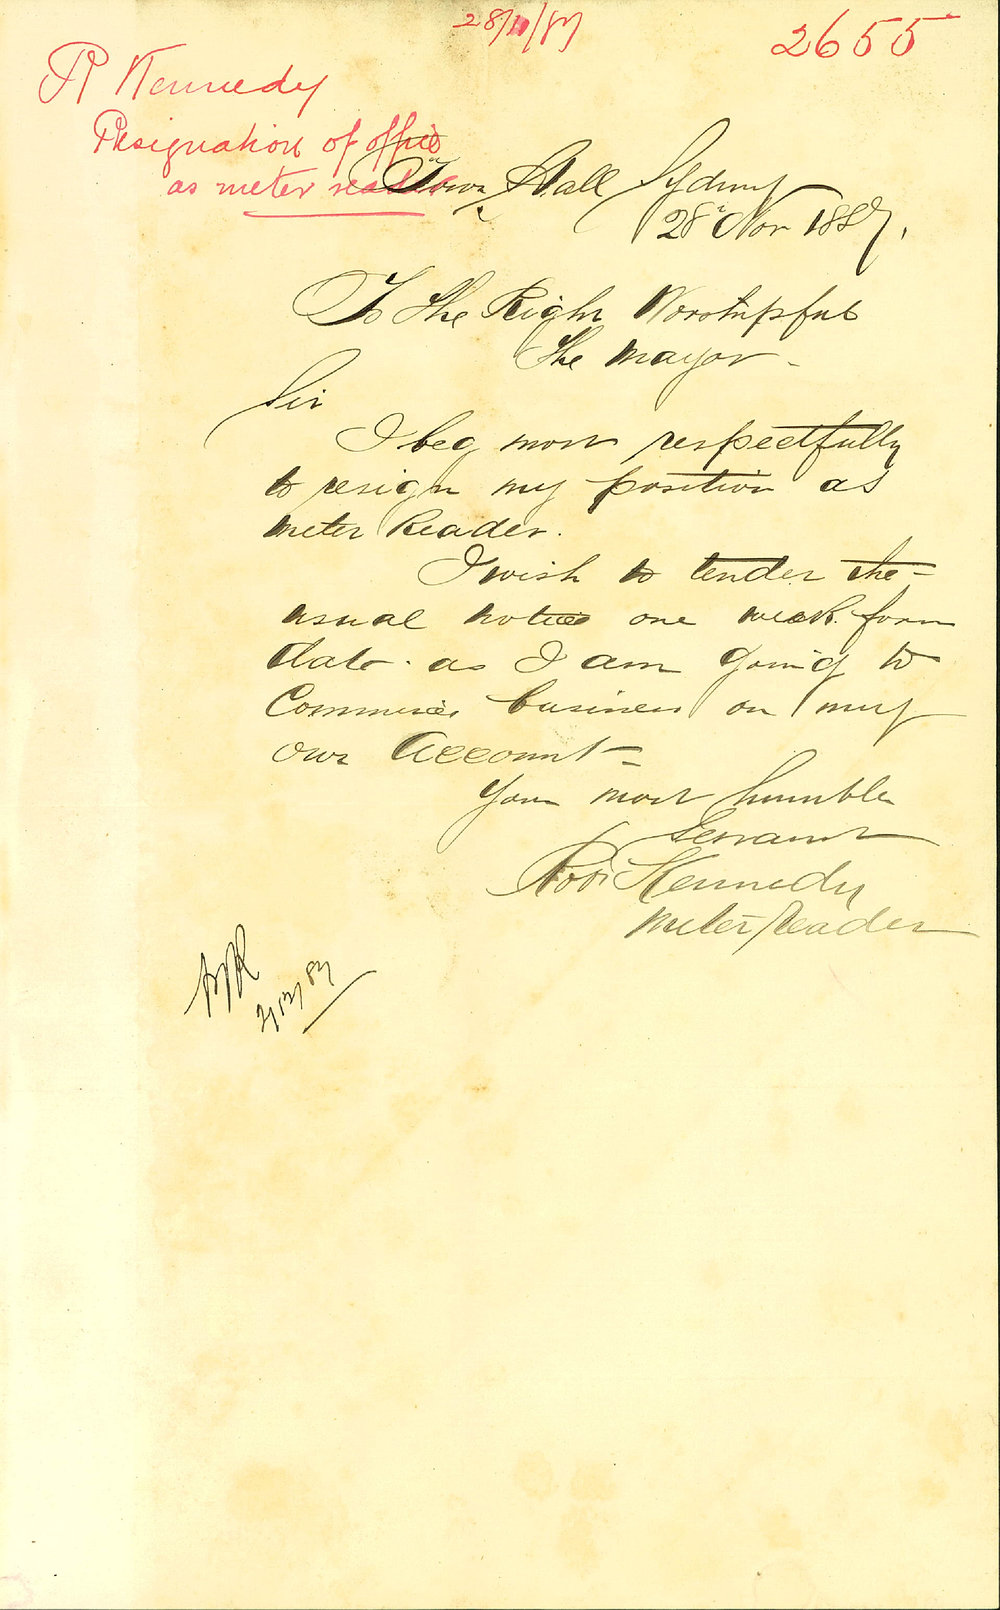 28/11/87
2655
R Kennedy
Resignation of office
as meter reader
Town Hall Sydney
28 Nov 1887.
To The Right Worshipful
The Mayor -
Sir
I beg most respectfully
to resign my position as
meter Reader.
I wish to tender the
usual notice one week from
date. as I am going to
Commence business on my
own Account
Your most humble
Servant
Robt Kennedy
Meter Reader